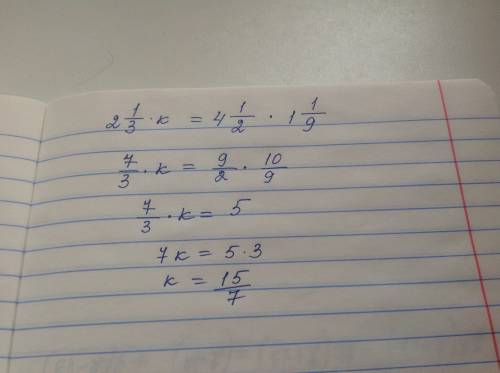 2 1/3 · к = 4 1/2 · 1 1/9
7/3 · к = 9/2 · 10/9
7/3 · к = 5
7к = 5·3
к = 15/7